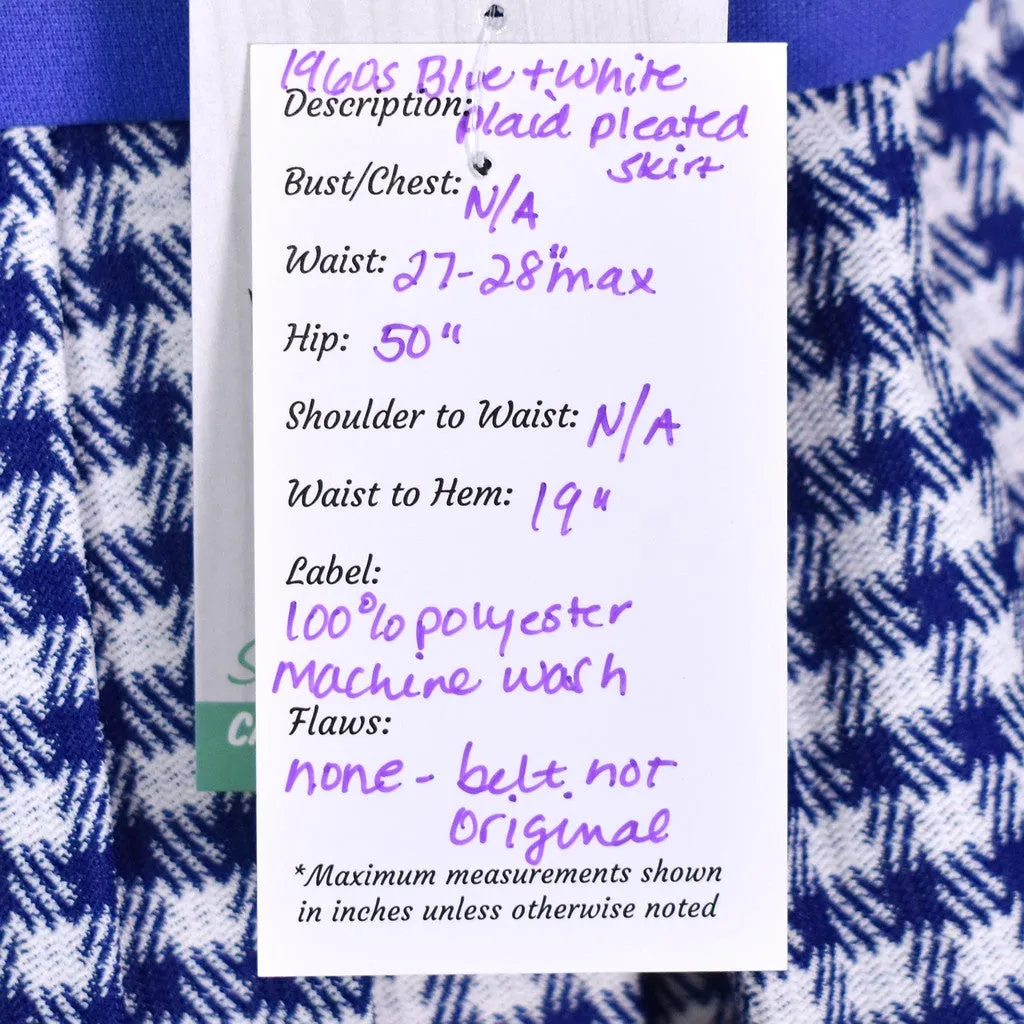 1960s Blue + White
Description: plaid pleated
skirt
Bust/Chest: N/A
Waist: 27-28" max
Hip: 50"
Shoulder to Waist: N/A
Waist to Hem: 19"
Label:
100% polyester
Machine wash
Flaws:
none - belt not
original
*Maximum measurements shown
in inches unless otherwise noted